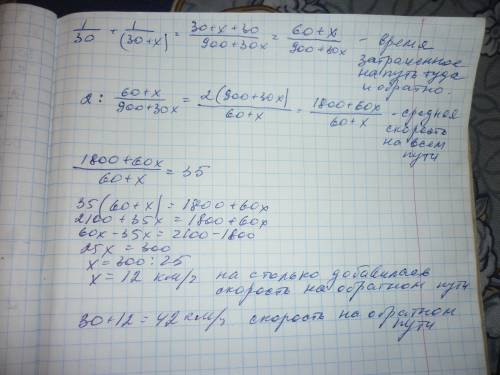 1/30 + 1/(30+x) = (30+x+30)/(900+30x) = (60+x)/(900+30x) - время
затраченное
на путь туда
и обратно.
2 : (60+x)/(900+30x) = 2(900+30x)/(60+x) = (1800+60x)/(60+x) - средняя
скорость
на всём
пути
(1800+60x)/(60+x) = 35
35(60+x) = 1800+60x
2100+35x = 1800+60x
60x-35x = 2100-1800
25x = 300
x = 300:25
x = 12 км/ч на столько добавилась
скорость на обратном пути
30+12 = 42 км/ч скорость на обратном
пути